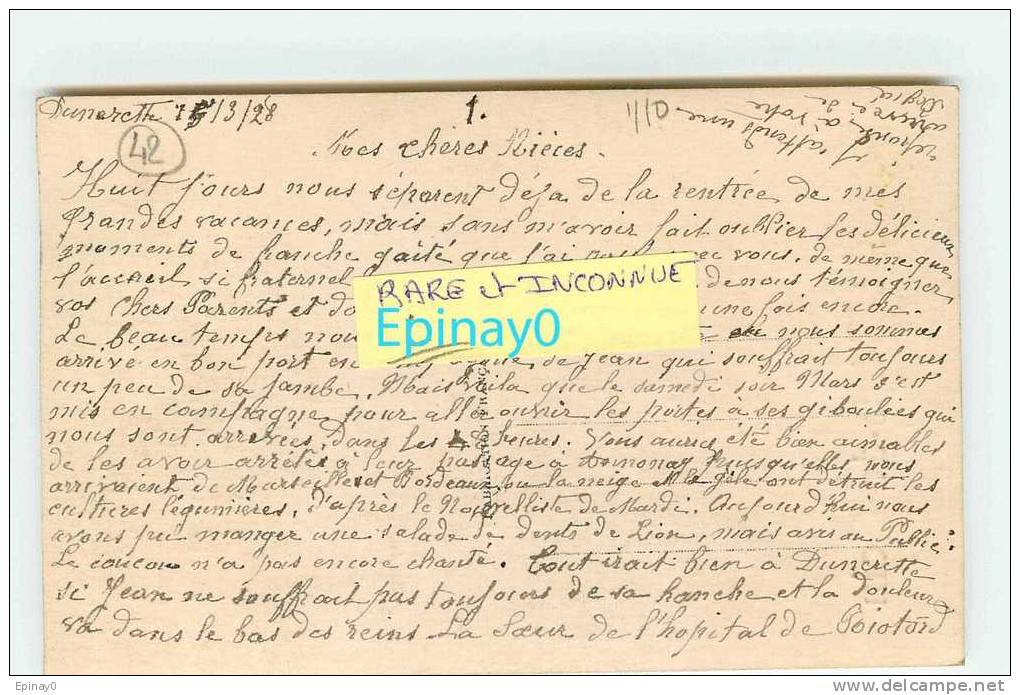 Dunerette 15/3/28
1.
1/10
42
J'attends une
réponse à votre
arrivée de
Mes chères Nièces.
Huit jours nous séparent déja de la rentrée de mes
grandes vacances, mais sans m'avoir fait oublier les délicieux
moments de franche gaîté que j'ai avec vous, de même que
l'accueil si fraternel de nous témoigner
vos chers Parents et une fois encore.
Le beau temps nous sommes
arrivé en bon port en de Jean qui souffrait toujours
un peu de sa jambe. Mais voila que le samedi soir Mars s'est
mis en campagne pour aller ouvrir les portes à ses giboulées qui
nous sont arrivées, dans les heures. Vous auriez été bien aimables
de les avoir arrêtées à leur passage à Annonay puisqu'elles nous
arrivaient de Marseille et Bordeaux ou la neige et le gêle ont détruit les
cultures légumières, d'après le Nouvelliste de Mardi. Aujourd'hui nous
avons pu manger une salade de dents de Lion, mais avis au Public:
Le coucou n'a pas encore chanté. Tout irait bien à Dunerette
si Jean ne souffrait pas toujours de sa hanche et la douleur
va dans le bas des reins La Sœur de l'hopital de
RARE et INCONNUE
Epinay0
Epinay0
www.delcampe.net